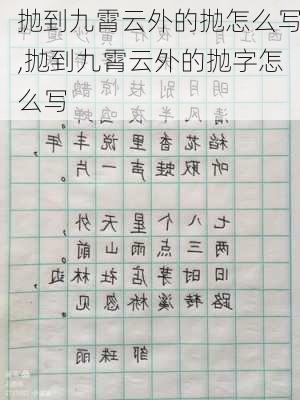 抛到九霄云外的抛怎么写
,抛到九霄云外的抛字怎
么写
明月别枝惊鹊
清风半夜鸣蝉
稻花香里说丰年,
听取蛙声一片。
七八个星天外,
两三点雨山前。
旧时茅店社林边,
路转溪桥忽见。
邹珠丽